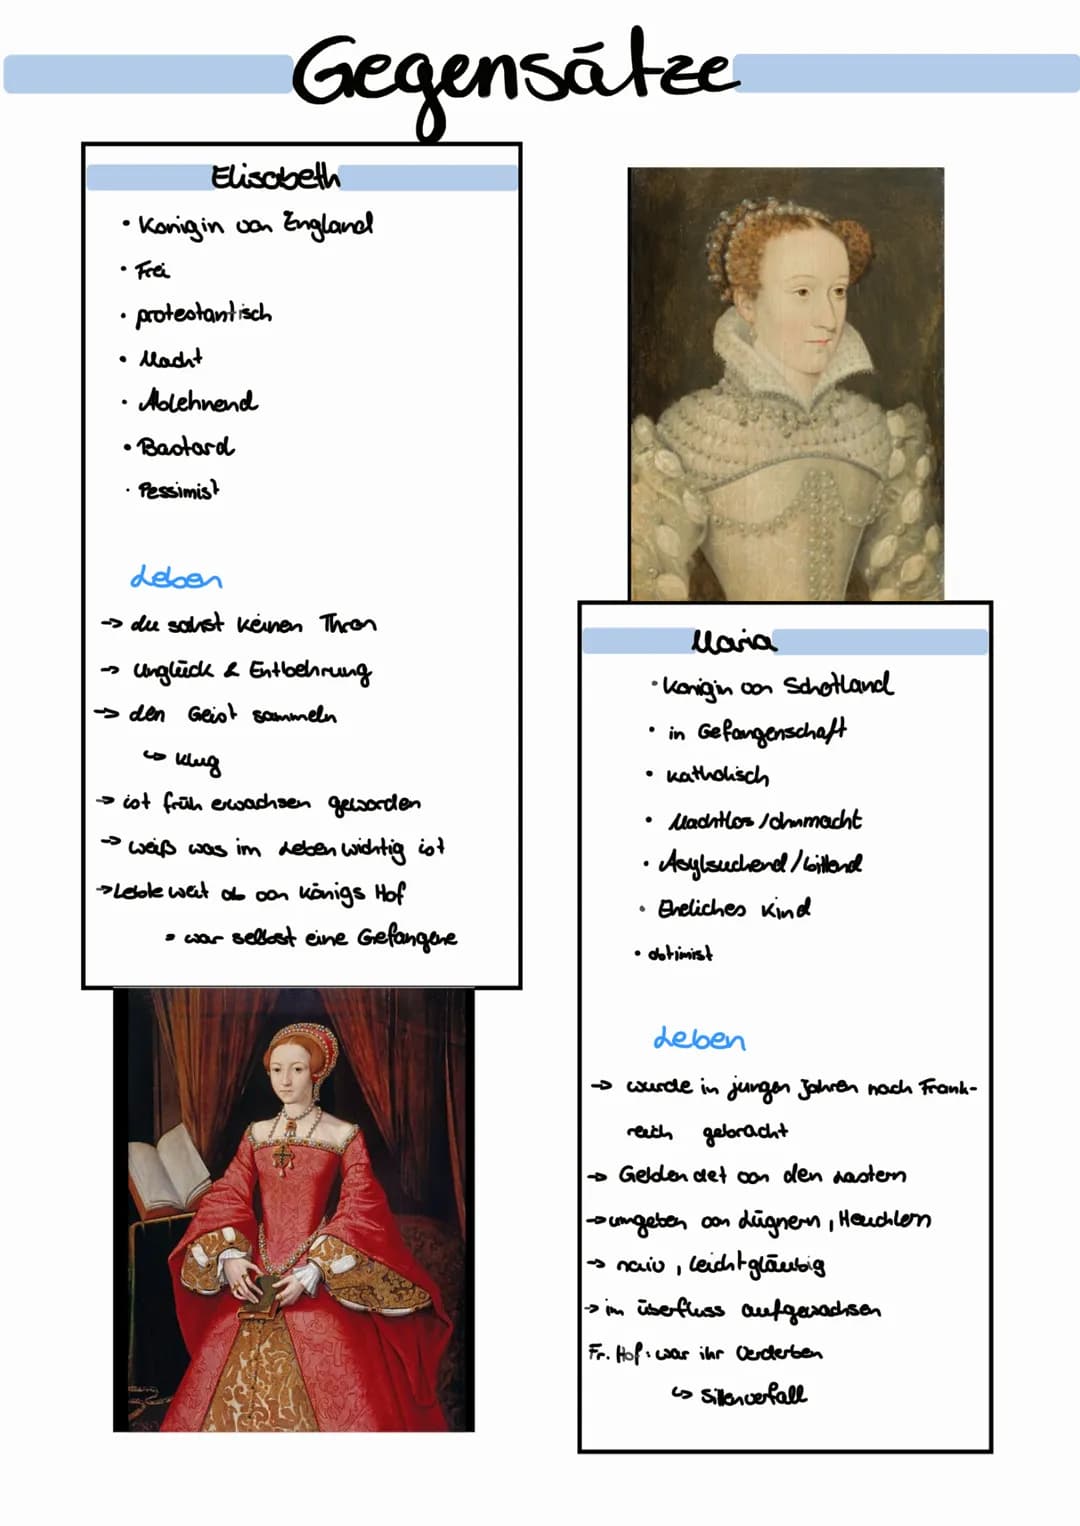 Gegensätze
Elisabeth
• Königin von England
• Frei
• protestantisch
• Macht
• Ablehnend
• Bastard
• Pessimist
Leben
→ du sahst keinen Thron
→ Unglück & Entbehrung
→ den Geist sammeln
↳ klug
→ ist früh erwachsen geworden
→ weiß was im Leben wichtig ist
→ Lebte weit ab von Königs Hof
= war selbst eine Gefangene
Maria
• Königin von Schotland
• in Gefangenschaft
• katholisch
• Machtlos / ohnmacht
• Asylsuchend / bittend
• Eheliches Kind
• obtimist
Leben
→ wurde in jungen Jahren nach Frank-
reich gebracht
→ Gelden det von den Lastern
→ umgeben von Lügnern, Heuchlern
→ naiv, leichtgläubig
→ im überfluss aufgewachsen
Fr. Hof: war ihr Verderben
↳ Sittenverfall